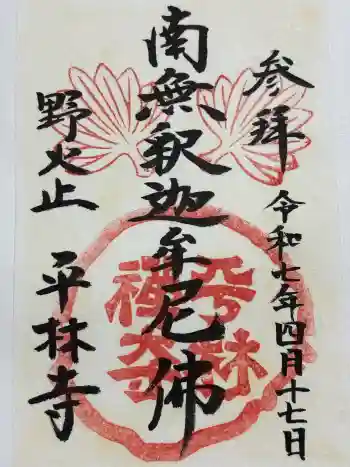 参拝
令和七年四月十七日
南無釈迦牟尼佛
野火止
平林寺